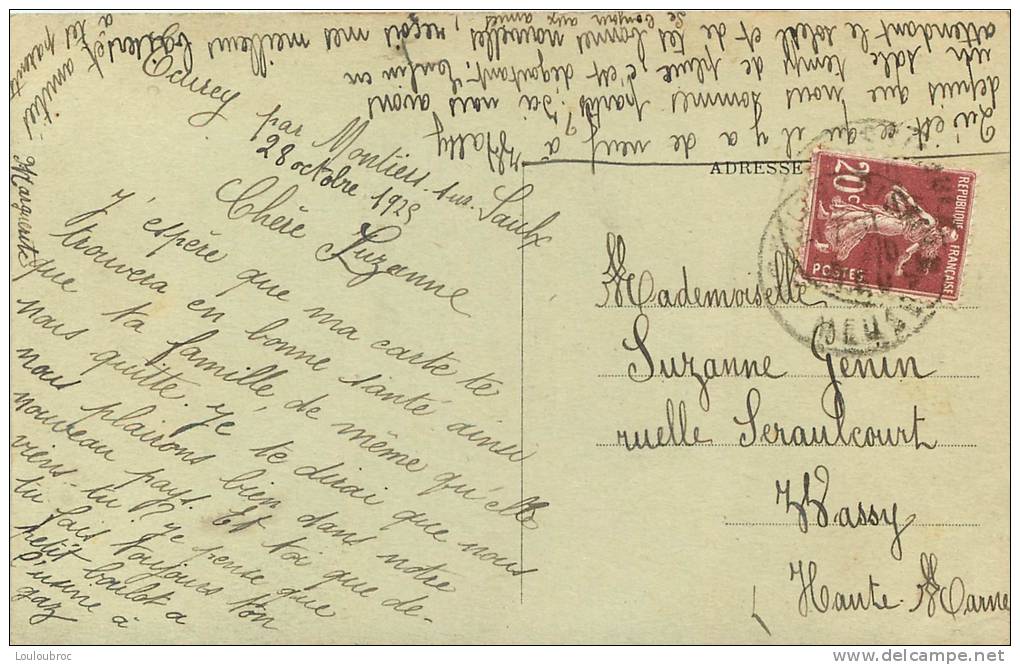 Ecurey
par Montiers-sur-Saulx
28 octobre 1929
Chère Suzanne
J'espère que ma carte te
trouvera en bonne santé ainsi
que ta famille, de même qu'elle
nous quitte. Je te dirai que nous
nous plairons bien dans notre
nouveau pays. Et toi que de-
viens-tu? Je pense que
tu fais toujours ton
petit boulot a
l'usine à
gaz
Qu'est ce qu'il y a de neuf à Wassy
depuis que nous sommes partis? Ici nous avons
un sale temps de pluie, c'est dégoutant. Enfin en
attendant le soleil et de tes bonnes nouvelles, reçois mes meilleurs baisers, et amitiés
à tes parents
Marguerite
Le bonjour aux amies
ADRESSE
RÉPUBLIQUE FRANÇAISE
20c
POSTES
MEUSE
Mademoiselle
Suzanne Génin
ruelle Seraulcourt
Wassy
Haute-Marne
Louloubroc
delcampe.net